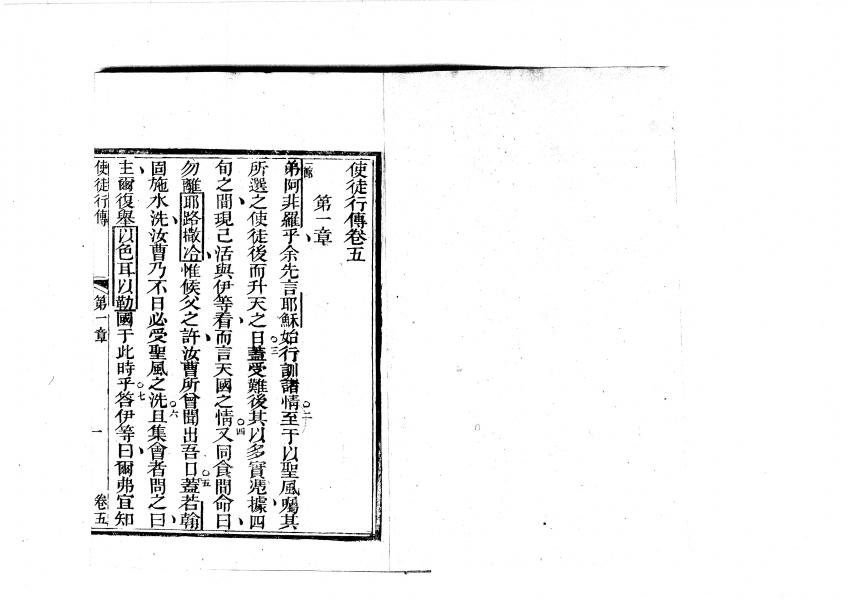 使徒行傳卷五
第一章
一節
弟阿非羅乎余先言耶穌始行訓諸情至于以聖風囑其
所選之使徒後而升天之日蓋受難後其以多實凴據四
旬之間現己活與伊等看而言天國之情又同食間命曰
勿離耶路撒冷惟候父之許汝曹所曾聞出吾口蓋若翰
固施水洗汝曹乃不日必受聖風之洗且集會者問之曰
主爾復舉以色耳以勒國于此時乎答伊等曰爾弗宜知
○二
○三
○四
○五
○六
○七
使徒行傳 第一章 一 卷五